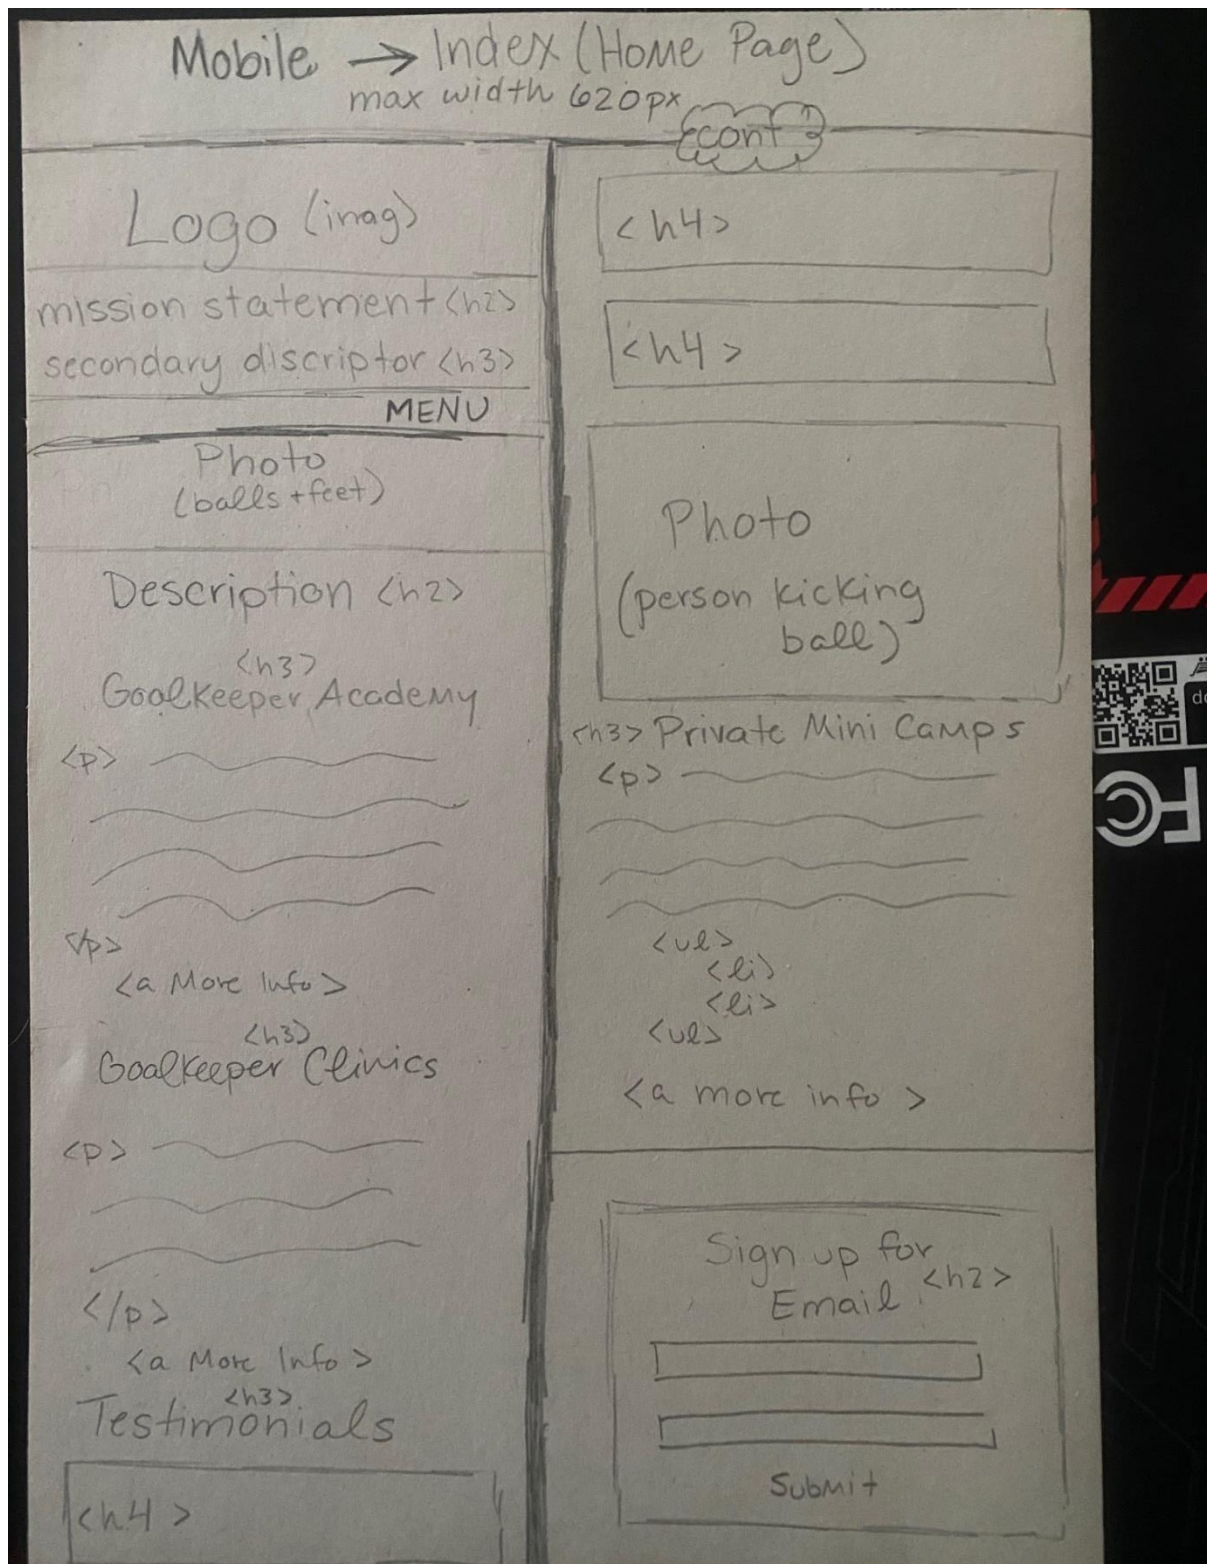 Mobile → Index (Home Page)
max width 620px
Logo (imag)
mission statement <h2>
secondary discriptor <h3>
MENU
Photo
(balls + feet)
Description <h2>
<h3>
Goalkeeper Academy
<p>
</p>
<a More Info>
<h3>
Goalkeeper Clinics
<p>
</p>
<a More Info>
<h3>
Testimonials
<h4>
cont
<h4>
<h4>
Photo
(person kicking
ball)
<h3> Private Mini Camps
<p>
<ul>
<li>
<li>
<ul>
<a more info >
Sign up for
Email <h2>
Submit
FC